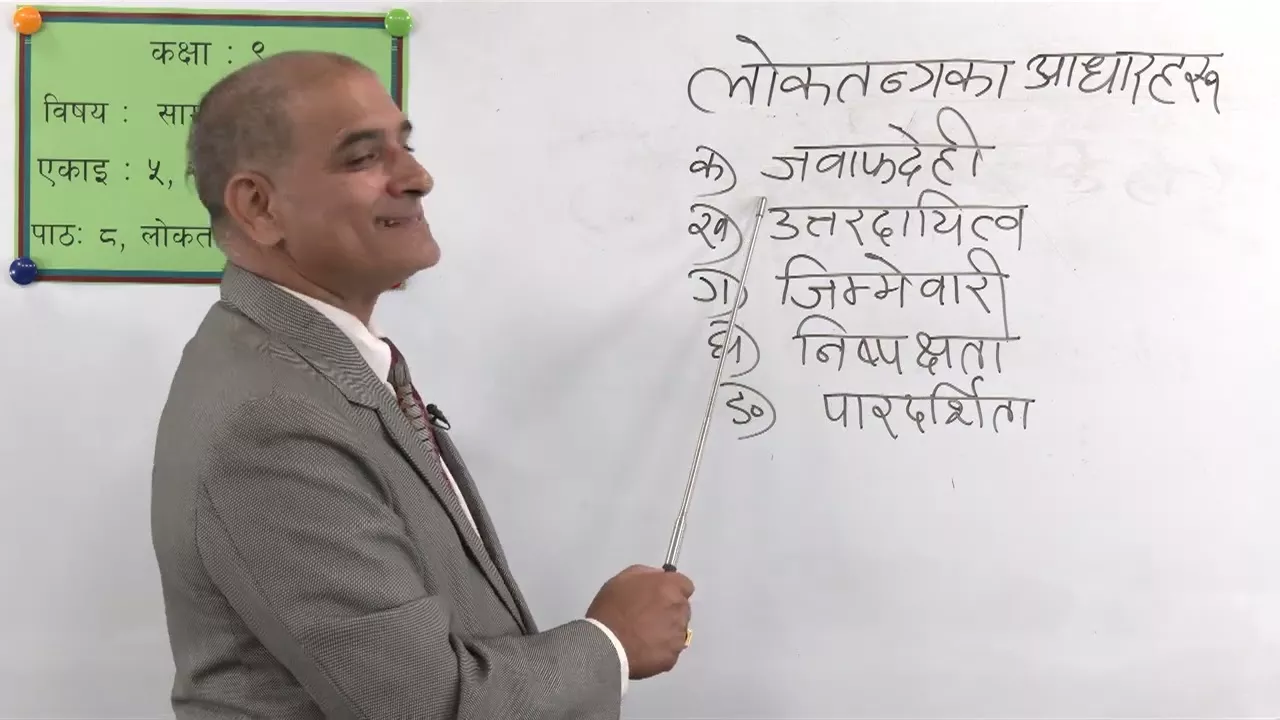 कक्षा : ९
विषय : साम
एकाइ : ५,
पाठः ८, लोकत
लोकतन्त्रका आधारहरू
क) जवाफदेही
ख) उत्तरदायित्व
ग) जिम्मेवारी
घ) निष्पक्षता
ङ) पारदर्शिता